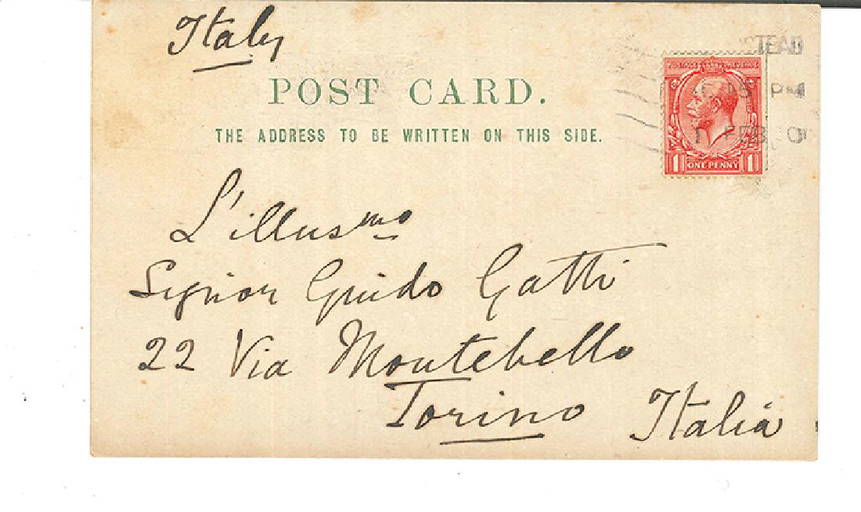 Italy
STEAD
POST CARD.
15 PM
THE ADDRESS TO BE WRITTEN ON THIS SIDE.
1 FEB
1 ONE PENNY 1
L'illus^mo
Signor Guido Gatti
22 Via Montebello
Torino Italia